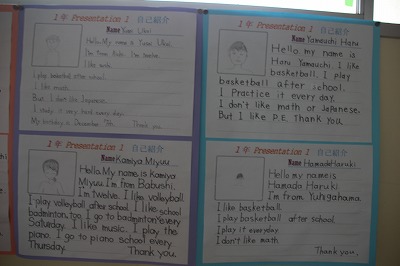 1年 Presentation 1 自己紹介
Name Yuei Ukei
Hello. My name is Yuuei Ukei.
I'm twelve.
I like
I play basketball after school.
I like music.
But I don't like Japanese.
I study it very hard every day.
My birthday is December 5th. Thank you.
1年 Presentation 1 自己紹介
Name Yamauchi Haru
Hello. my name is
Haru Yamauchi. I like
basketball. I play
basketball after school.
I Practice it every day.
I don't like math or Japanese.
But I like P.E. Thank You
1年 Presentation 1 自己紹介
Name Kamiya Miyuu
Hello. My name is Kamiya
Miyuu. I'm from Babushi.
I'm twelve. I like volleyball.
I play volleyball after school. I like school
badminton, too. I go to badminton every
Saturday. I like music. I play the
piano. I go to piano school every
Thursday. Thank you.
1年 Presentation 1 自己紹介
Name Hamada Haruki
Hello my name is
Hamada Haruki
I'm from Yunigahama.
I like basketball.
I play basketball after school.
I play it everyday.
I don't like math
Thank you.